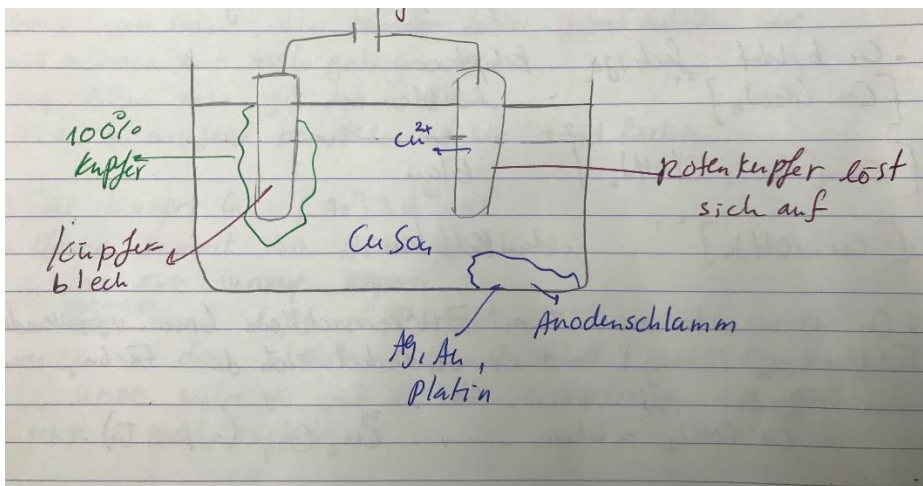 100%
Kupfer
Kupfer=
blech
Cu²⁺
Rotenkupfer löst
sich auf
CuSO₄
Anodenschlamm
Ag, Au,
Platin